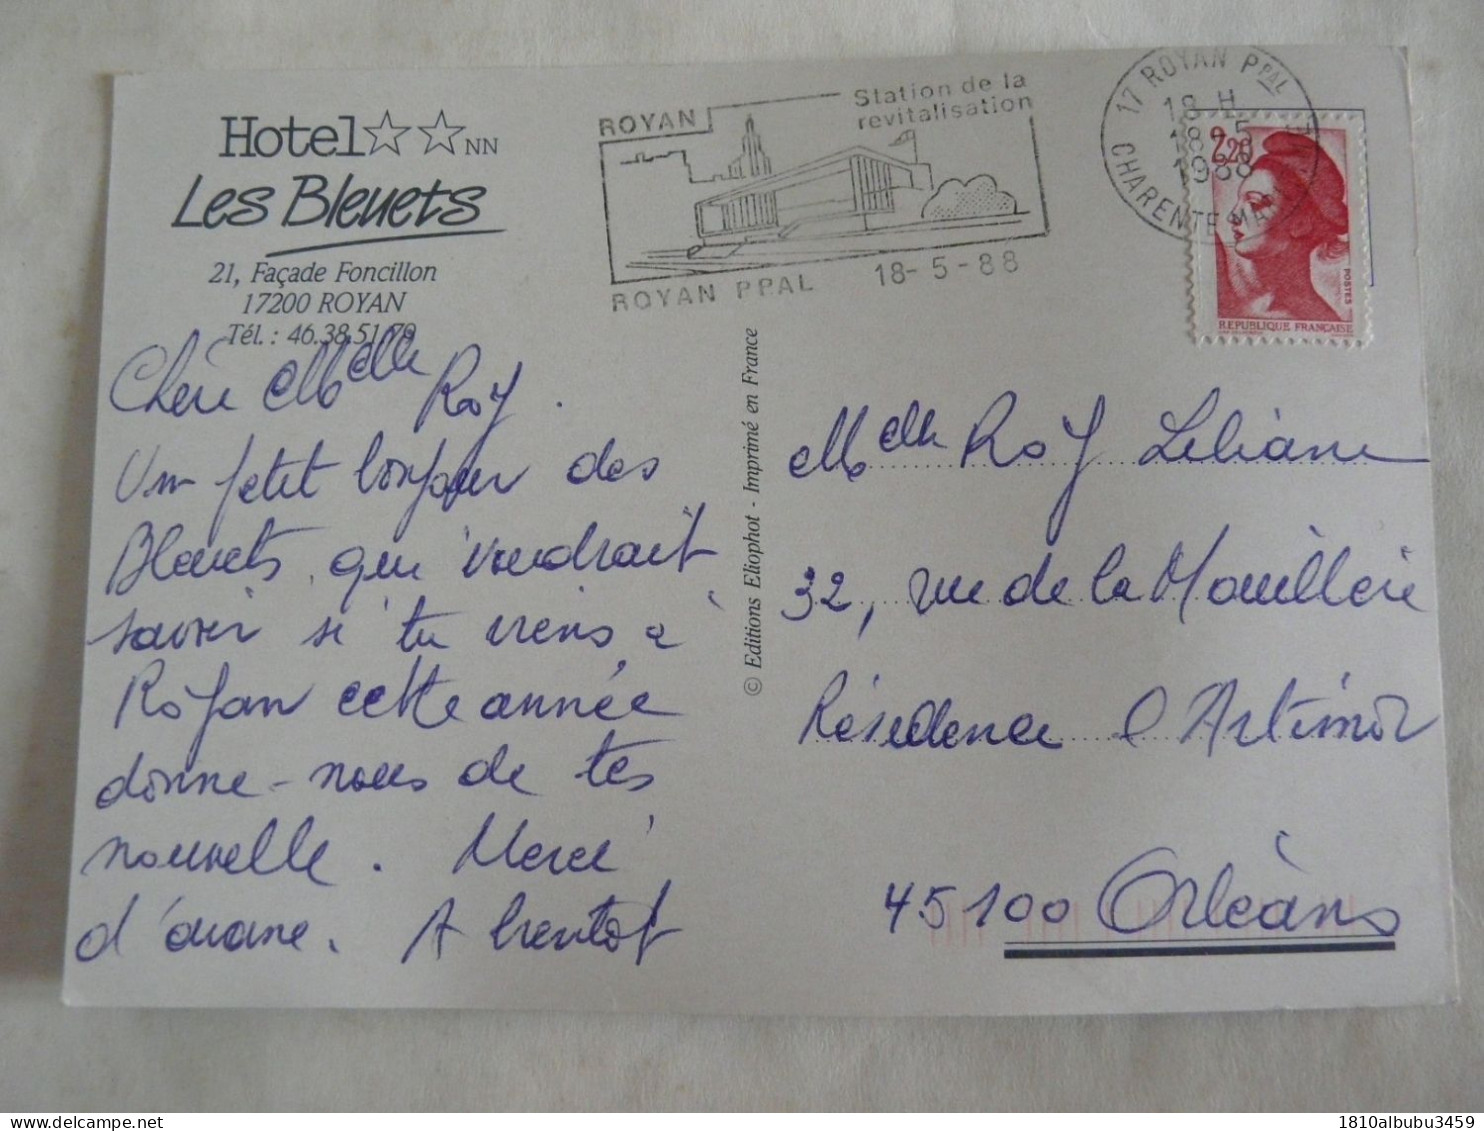 Hotel☆☆NN
Les Bleuets
21, Façade Foncillon
17200 ROYAN
Tél. : 46.38.51.79
Chère Melle Roy.
Un petit bonjour des
Bleuets qui voudrait
savoir si tu viens à
Royan cette année
donne-nous de tes
nouvelle. Merci
d'avance. A bientot
© Editions Eliophot - Imprimé en France
ROYAN
Station de la
revitalisation
ROYAN PPAL 18-5-88
17 ROYAN PPAL
18 H
18-5
1988
CHARENTE MAR
2,20
POSTES
REPUBLIQUE FRANÇAISE
Melle Roy Liliane
32, rue de la Mouillère
Résidence l'Artimon
45100 Orléans
1810albubu3459